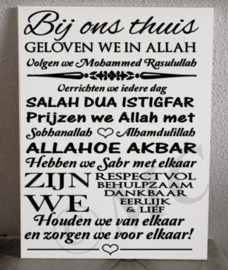 Bij ons thuis
GELOVEN WE IN ALLAH
Volgen we Mohammed Rasulullah
Verrichten we iedere dag
SALAH DUA ISTIGFAR
Prijzen we Allah met
Sobhanallah Alhamdulillah
ALLAHOE AKBAR
Hebben we Sabr met elkaar
ZIJN WE
RESPECTVOL
BEHULPZAAM
DANKBAAR
EERLIJK
& LIEF
Houden we van elkaar
en zorgen we voor elkaar!